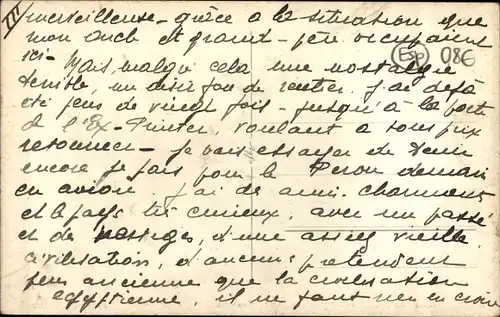 III
merveilleuse - grâce à la situation que
mon oncle et grand-père occupaient
ici - Mais malgré cela une nostalgie
terrible, un désir fou de rentrer. J'ai déjà
été plus de vingt fois - jusqu'à la porte
de l'Ex- voulant à tous prix
retourner - je vais essayer de tenir
encore je pars pour le Pérou demain
en avion. J'ai de amis charmants
et le pays très curieux, avec un passé
et de vestiges, d'une assez vieille
civilisation, d'aucuns prétendent
plus ancienne que la civilisation
égyptienne, il ne faut rien en croire
Esp
086